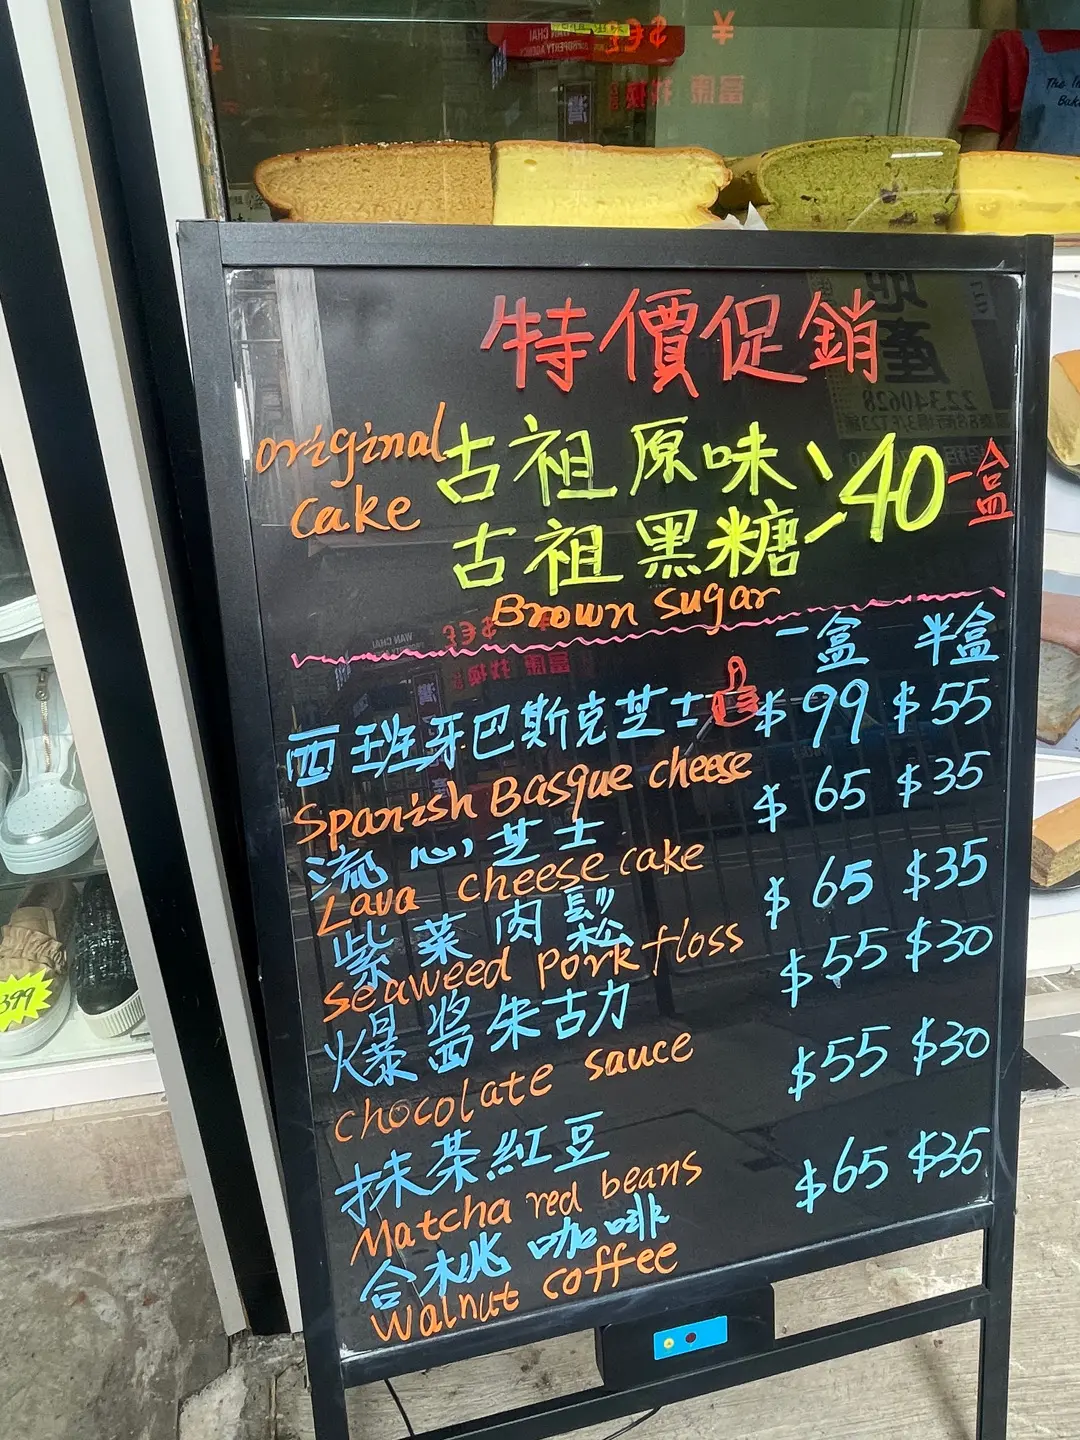 WAN CHAI
PROPERTY AGENCY
$€
¥
富康找換
特價促銷
original
cake
古祖原味
古祖黑糖
40
一盒
Brown sugar
一盒 半盒
西班牙巴斯克芝士 $99 $55
Spanish Basque cheese
流心芝士 $65 $35
Lava cheese cake
紫菜肉鬆 $65 $35
Seaweed pork floss
爆醬朱古力 $55 $30
chocolate sauce
抹茶紅豆 $55 $30
Matcha red beans
合桃咖啡 $65 $35
walnut coffee
地產
22340628
399